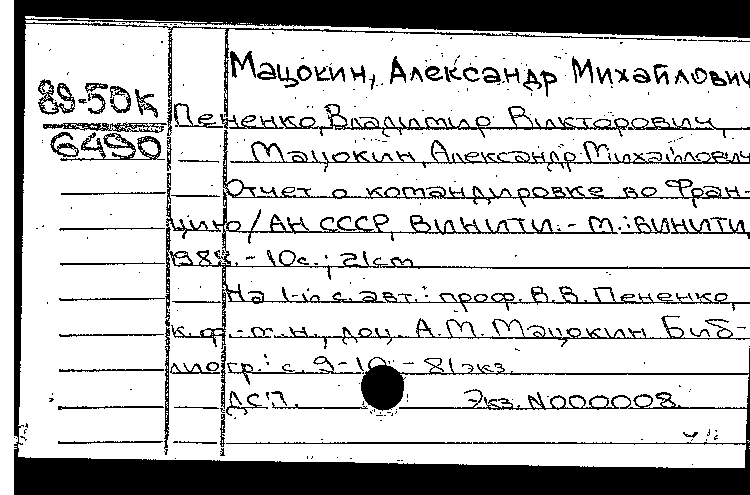 Мацокин, Александр Михайлович
89-50К
6490
Пененко, Владимир Викторович,
Мацокин, Александр Михайлович
Отчет о командировке во Фран-
цию / АН СССР, ВИНИТИ. - М.: ВИНИТИ,
1988. - 10с.; 21см
На 1-й с. авт.: проф. В.В. Пененко,
к.ф.-м.н., доц. А.М. Мацокин. Биб-
лиогр.: с. 9-10 - 81экз.
ДСП. Экз. N000008.